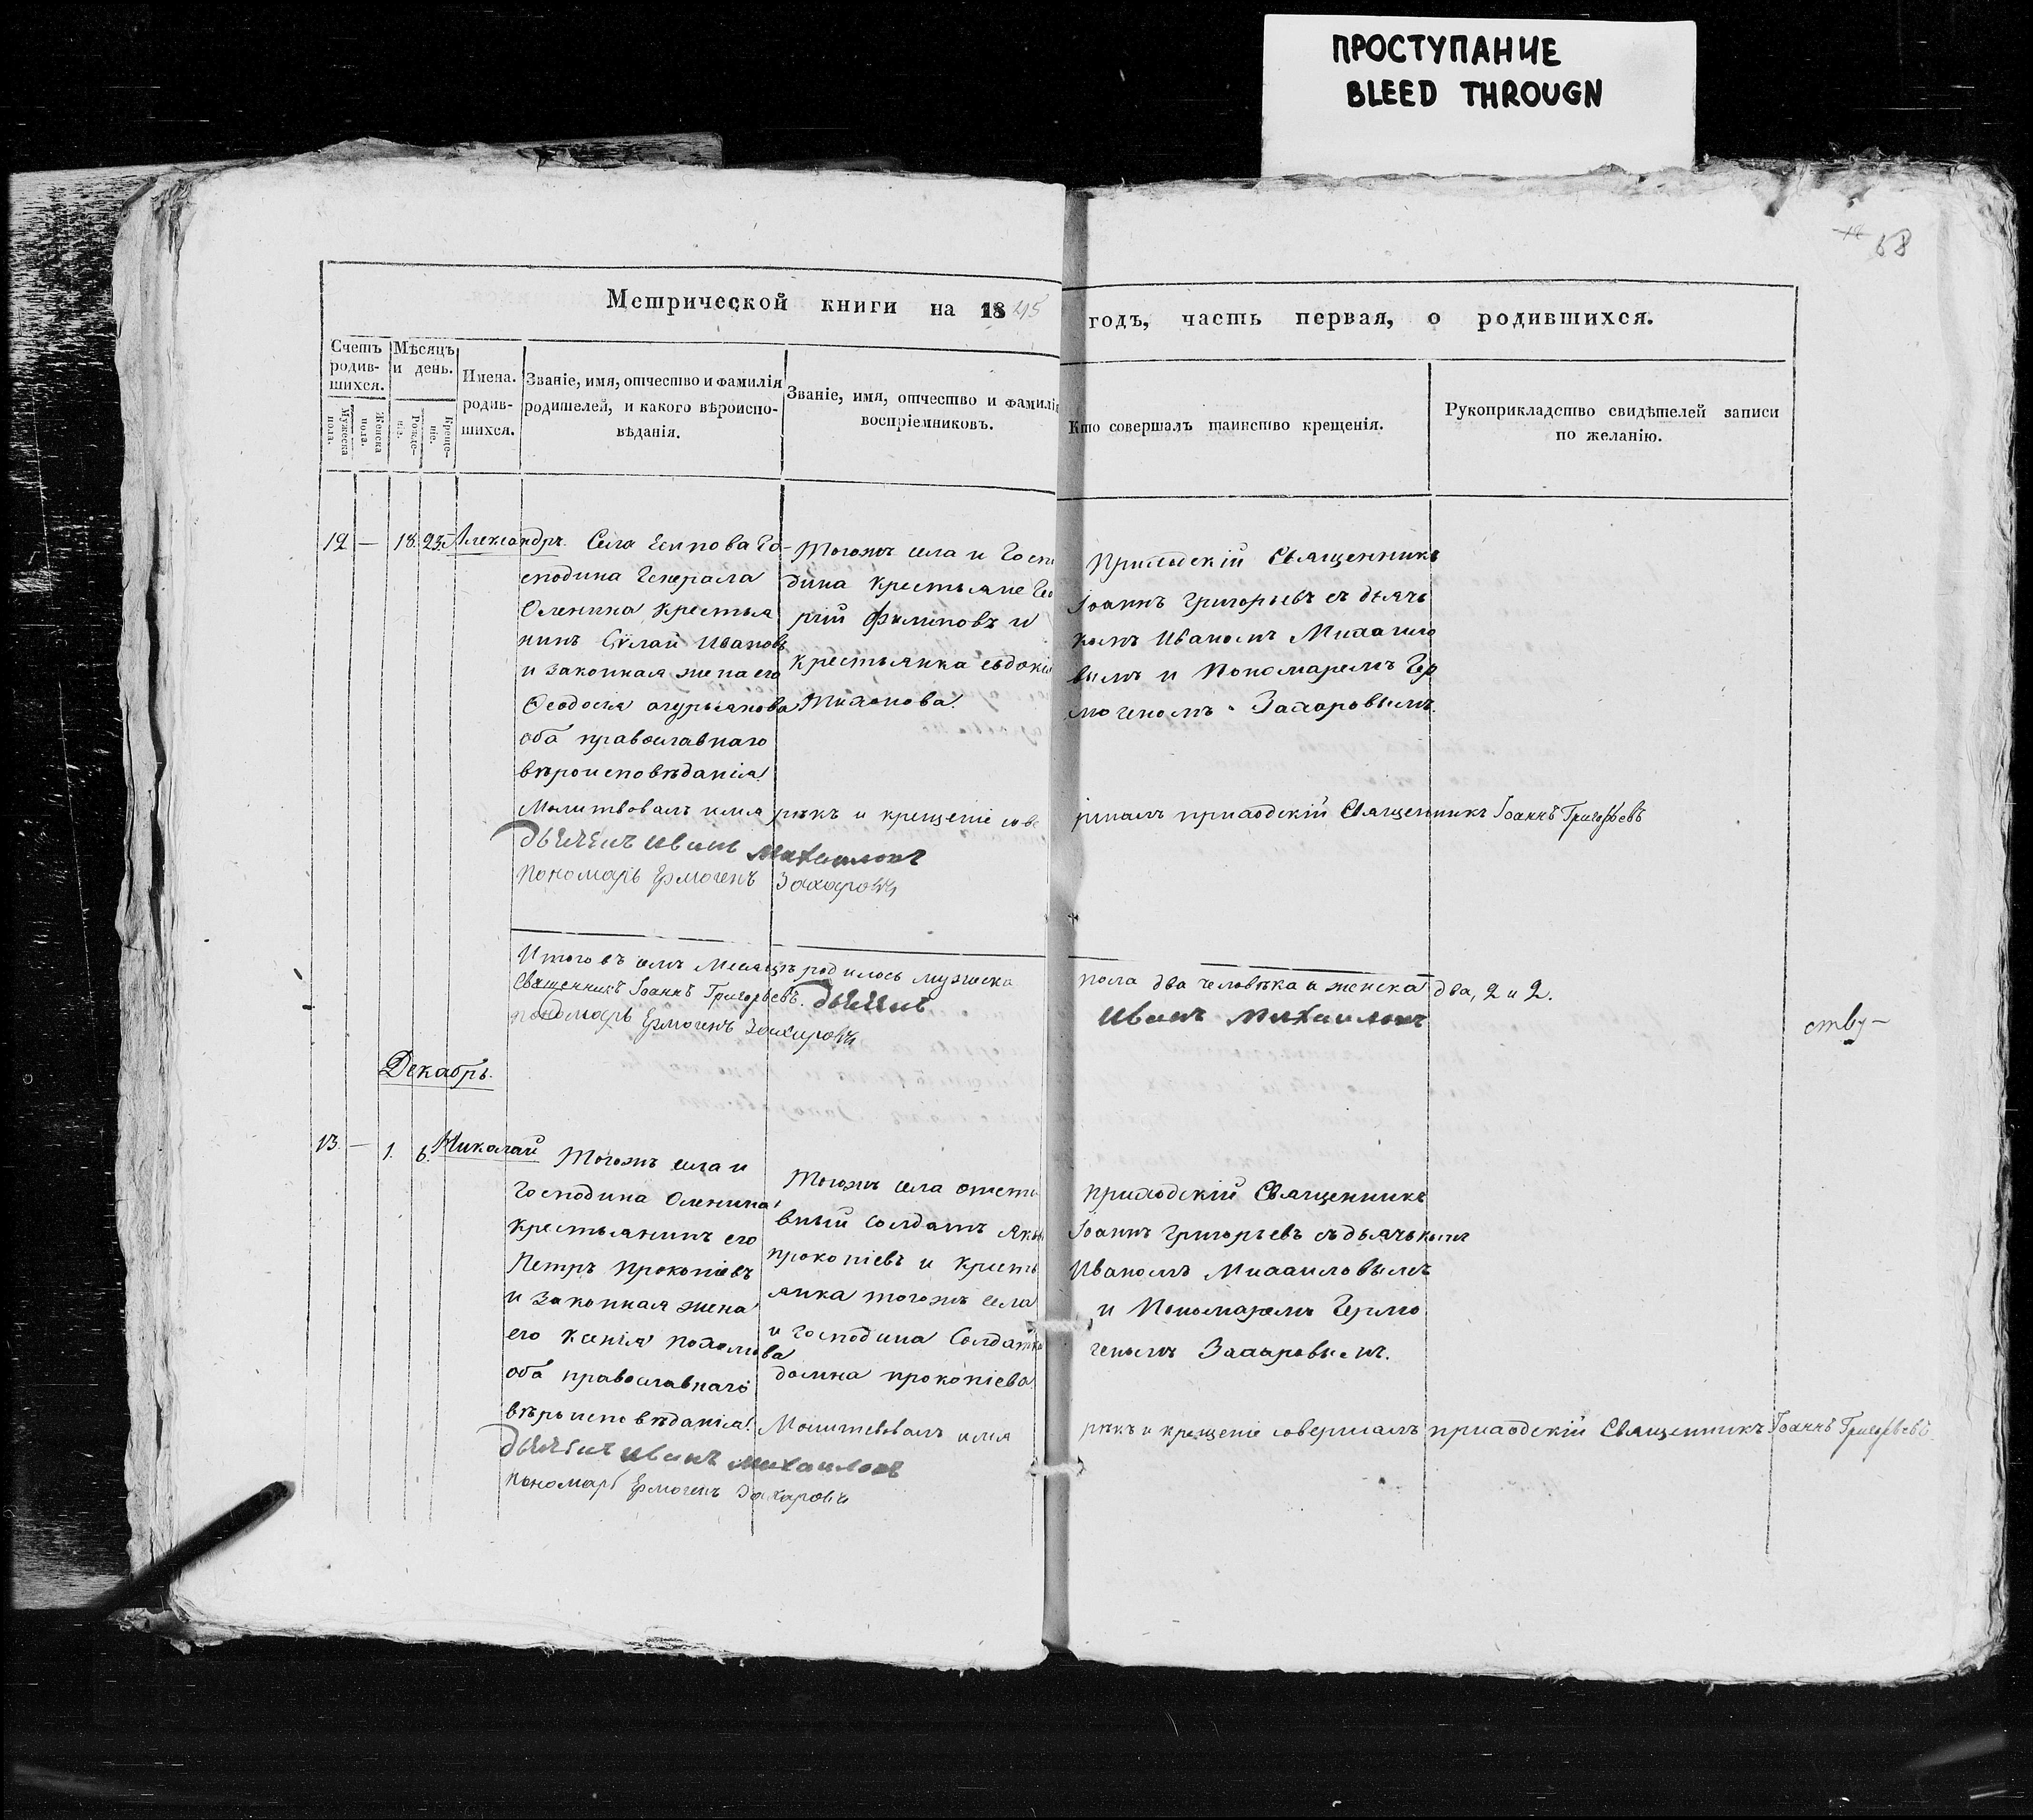 ПРОСТУПАНИЕ
BLEED THROUGN
68
Метрической книги на 1845
годъ, часть первая, о родившихся.
Счетъ родившихся.
Мужеска пола.
Женска пола.
Мѣсяцъ и день.
Рожденіе.
Крещеніе.
Имена родившихся.
Званіе, имя, отчество и фамилія
родителей, и какого вѣроиспо-
вѣданія.
Званіе, имя, отчество и фамилія
воспріемниковъ.
Кто совершалъ таинство крещенія.
Рукоприкладство свидѣтелей записи
по желанію.
12 — 18. 23. Александръ.
Села Го-
сподина Генерала
Оленина крестья
нинъ Ивановъ
и законная жена его
Ѳеодосія
оба православнаго
вѣроисповѣданія
Тогожъ села и Госпо
дина крестьяне Гео
ргій Филиповъ и
крестьянка евдокія
Тихонова.
Приходскій Священникъ
Іоаннъ Григорьевъ съ дьячь
комъ Иваномъ Михаило
вымъ и Пономаремъ Гер
могеномъ Захаровымъ.
Молитвовалъ имя рѣкъ и крещеніе сове
ршалъ приходскій Священникъ Іоаннъ Григорьевъ
дьячекъ иванъ михаиловъ
пономарь Ермогенъ Захаровъ
Итого въ семъ Месяцѣ родилось мужеска
пола два человѣка и женска два, 2 и 2.
Священникъ Іоаннъ Григорьевъ. дьячекъ
иванъ михаиловъ
пономарь Ермогенъ Захаровъ
ству-
Декабрь.
13. — 1. 6. Николай
Тогожъ села и
Господина Оленина
крестьянинъ его
Петръ прокопіевъ
и законная жена
его Ксенія
оба православнаго
вѣроисповѣданія.
Тогожъ села отста
вный солдатъ
прокопіевъ и кресть
янка тогожъ села
и господина Солдатка
домна прокопіева
приходскій Священникъ
Іоаннъ Григорьевъ съ дьячькомъ
Иваномъ Михаиловымъ
и Пономаремъ Гермо
геномъ Захаровымъ.
Молитвовалъ имя
рѣкъ и крещеніе совершалъ приходскій Священникъ Іоаннъ Григорьевъ
дьячекъ иванъ михаиловъ
пономарь Ермогенъ Захаровъ